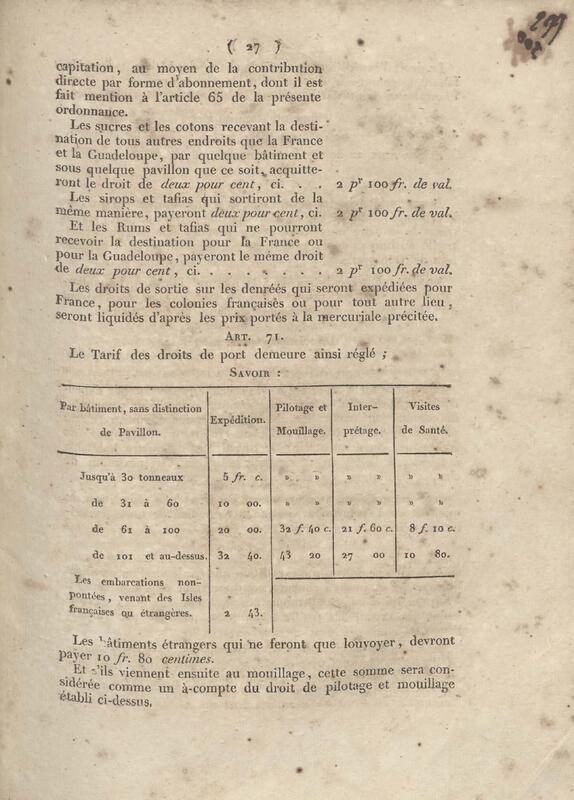 ( 27 )
capitation, au moyen de la contribution
directe par forme d'abonnement, dont il est
fait mention à l'article 65 de la présente
ordonnance.
Les sucres et les cotons recevant la desti-
nation de tous autres endroits que la France
et la Guadeloupe, par quelque bâtiment et
sous quelque pavillon que ce soit, acquitte-
ront le droit de deux pour cent, ci. . . 2 pr 100 fr. de val.
Les sirops et tafias qui sortiront de la
même manière, payeront deux pour cent, ci. 2 pr 100 fr. de val.
Et les Rums et tafias qui ne pourront
recevoir la destination pour la France ou
pour la Guadeloupe, payeront le même droit
de deux pour cent, ci. . . . . . . . . 2 pr 100 fr. de val.
Les droits de sortie sur les denréés qui seront expédiées pour
France, pour les colonies françaisés ou pour tout autre lieu,
seront liquidés d'après les prix portés à la mercuriale précitée.
ART. 71.
Le Tarif des droits de port demeure ainsi réglé ;
SAVOIR :
Par bâtiment, sans distinction de Pavillon. Expédition. Pilotage et Mouillage. Inter-prétage. Visites de Santé.
Jusqu'à 30 tonneaux 5 fr. c. » » » » » »
de 31 à 60 10 00. » » » » » »
de 61 à 100 20 00. 32 f. 40 c. 21 f. 60 c. 8 f. 10 c.
de 101 et au-dessus. 32 40. 43 20 27 00 10 80.
Les embarcations non-
pontées, venant des Isles
françaises ou étrangères. 2 43.
Les bâtiments étrangers qui ne feront que louvoyer, devront
payer 10 fr. 80 centimes.
Et s'ils viennent ensuite au mouillage, cette somme sera con-
sidérée comme un à-compte du droit de pilotage et mouillage
établi ci-dessus.